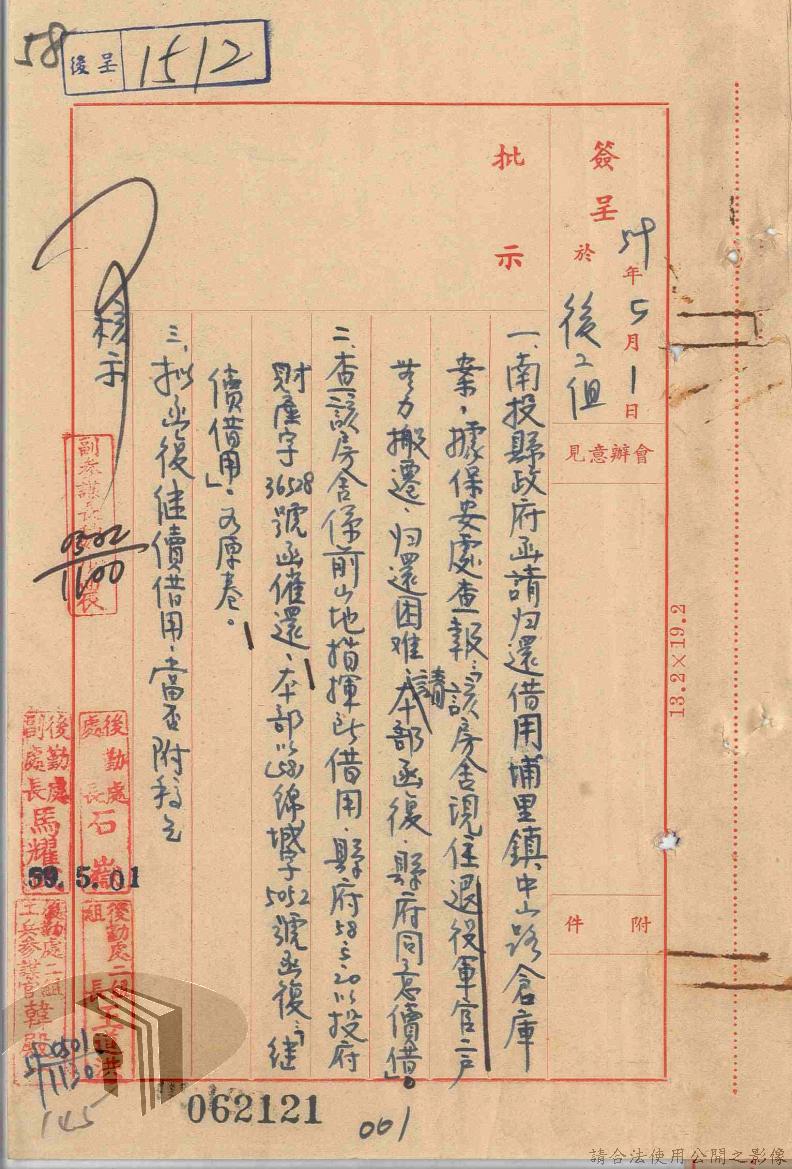 58
後呈 1512
簽呈 於 59年5月1日
後二組
會辦意見
附件
批示
一、南投縣政府函請归還借用埔里鎮中山路倉庫
案,據保安處查報:「該房舍現住退役軍官二戶
無力搬遷,归還困难,請本部函復縣府同意續借」。
二、查該房舍係前山地指揮所借用,縣府58.5.20以投府
財產字36528號函催還,本部以(58)綿城字5052號函復「継
續借用」,有原卷。
三、擬函復継續借用,當否附稿乞
核示
副參謀長
0502
1100
後勤處處長石嵩
後勤處副處長馬耀
59.5.01
後勤處二組組長王道洪
後勤處二組工兵參謀官韓殿
0501
1120
145
062121
001
13.2×19.2
請合法使用公開之影像